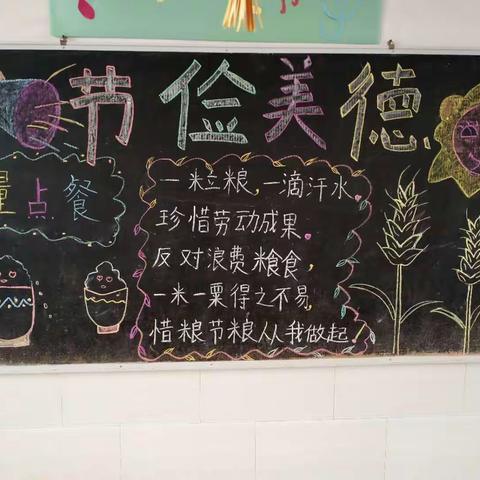 节俭美德
量点餐
一粒粮,一滴汗水。
珍惜劳动成果。
反对浪费粮食,
一米一粟得之不易
惜粮节粮从我做起!